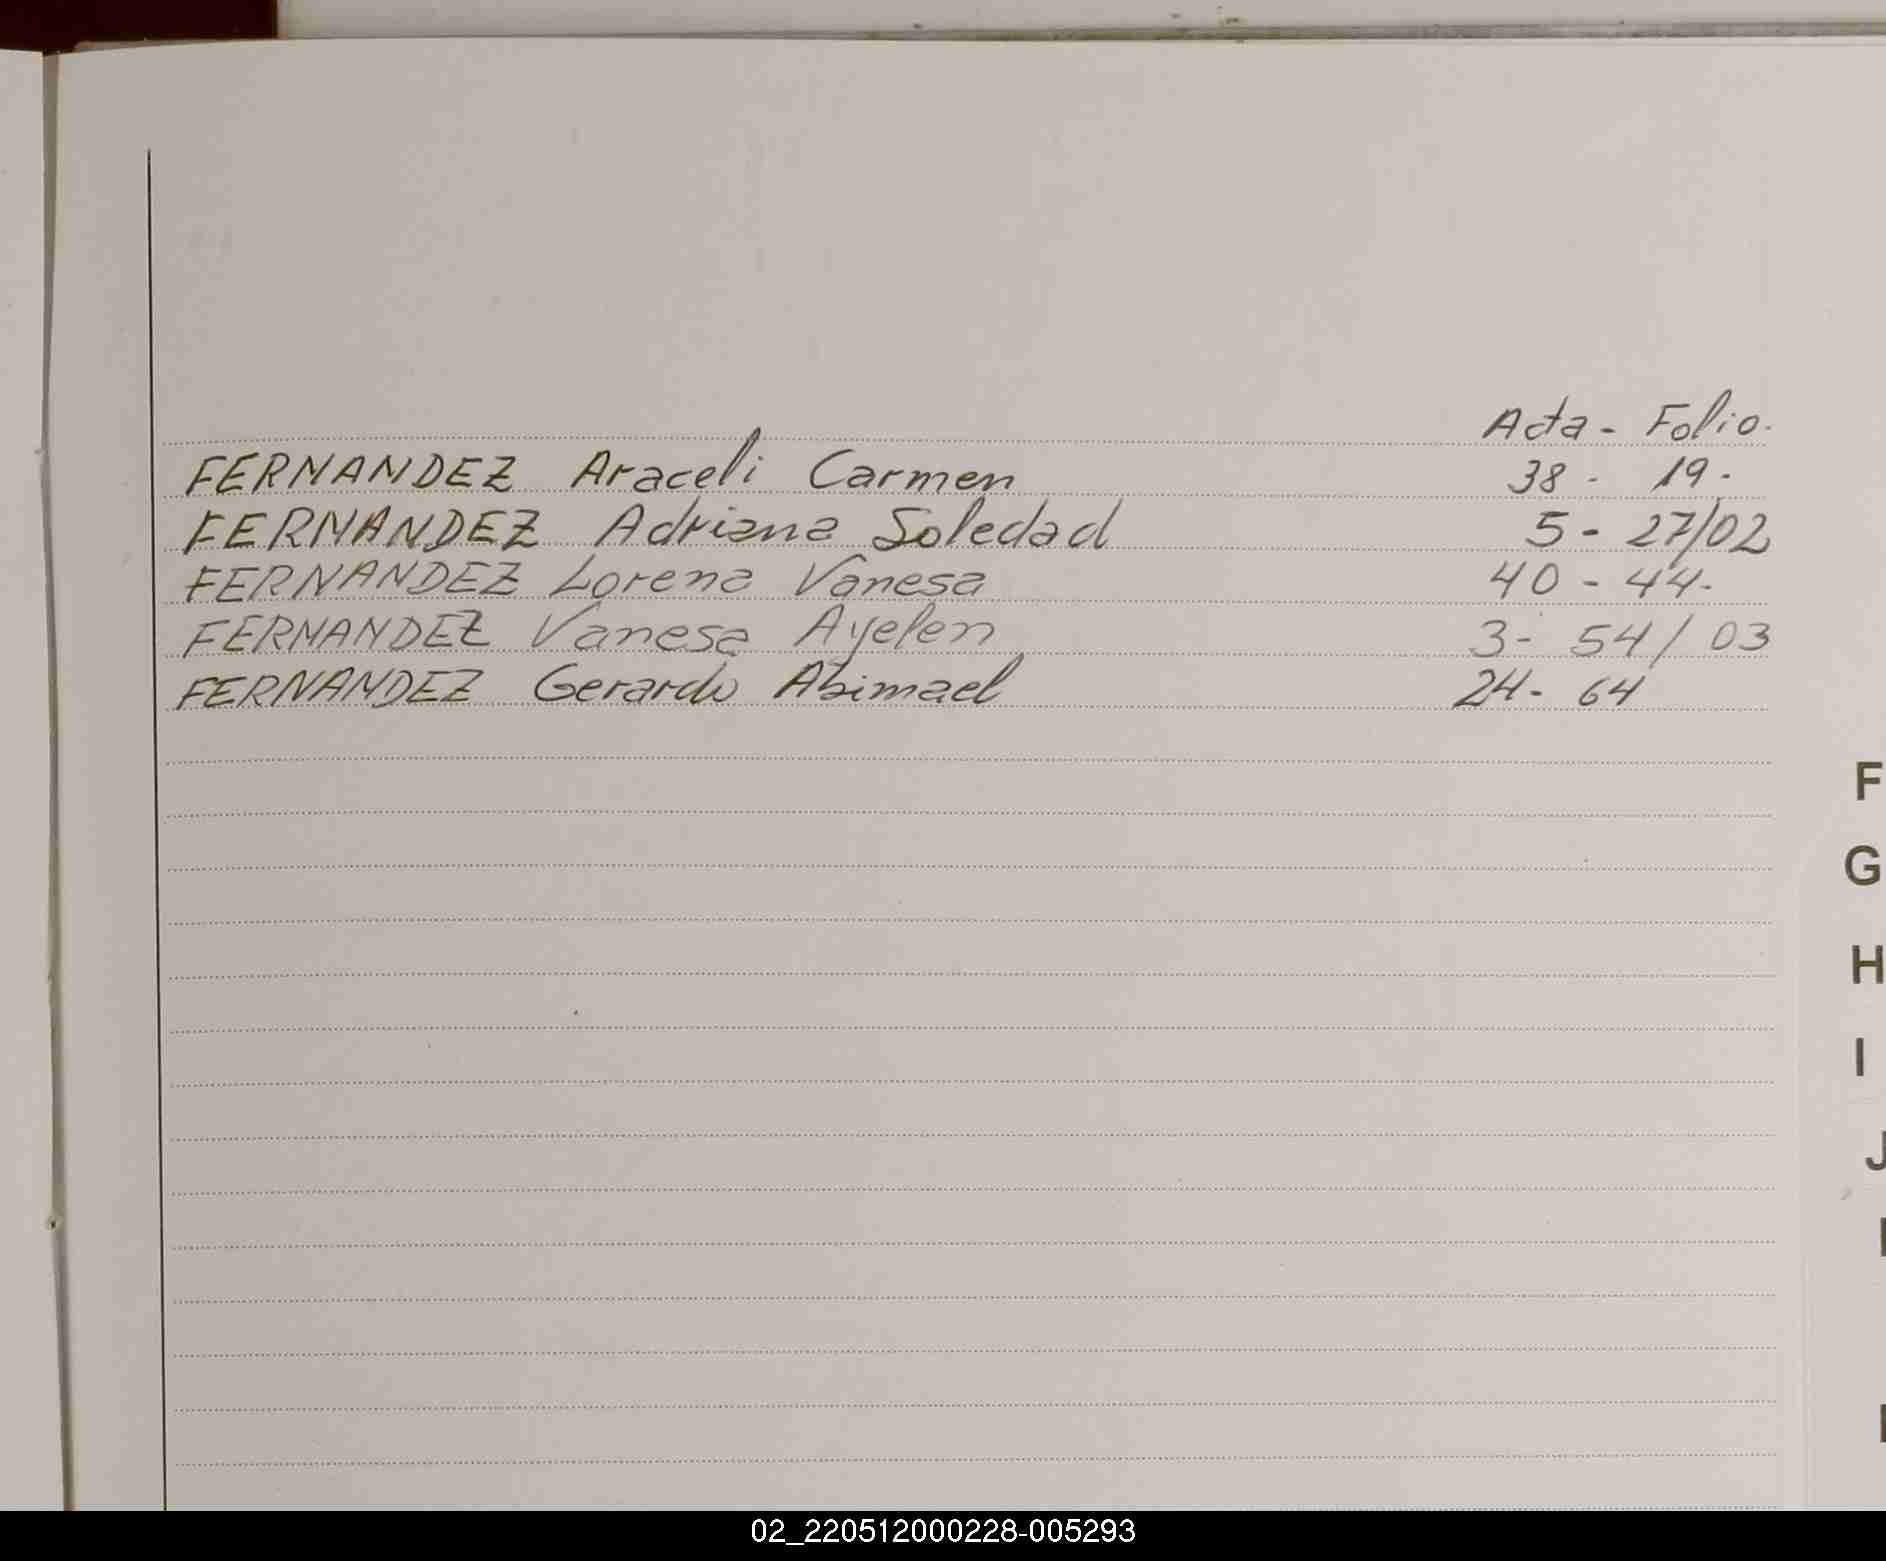 Acta - Folio.
FERNANDEZ Araceli Carmen 38 - 19.
FERNANDEZ Adriana Soledad 5 - 27/02
FERNANDEZ Lorena Vanesa 40 - 44.
FERNANDEZ Vanesa Ayelen 3 - 54 / 03
FERNANDEZ Gerardo Abimael 24 - 64
F
G
H
I
J
02_220512000228-005293